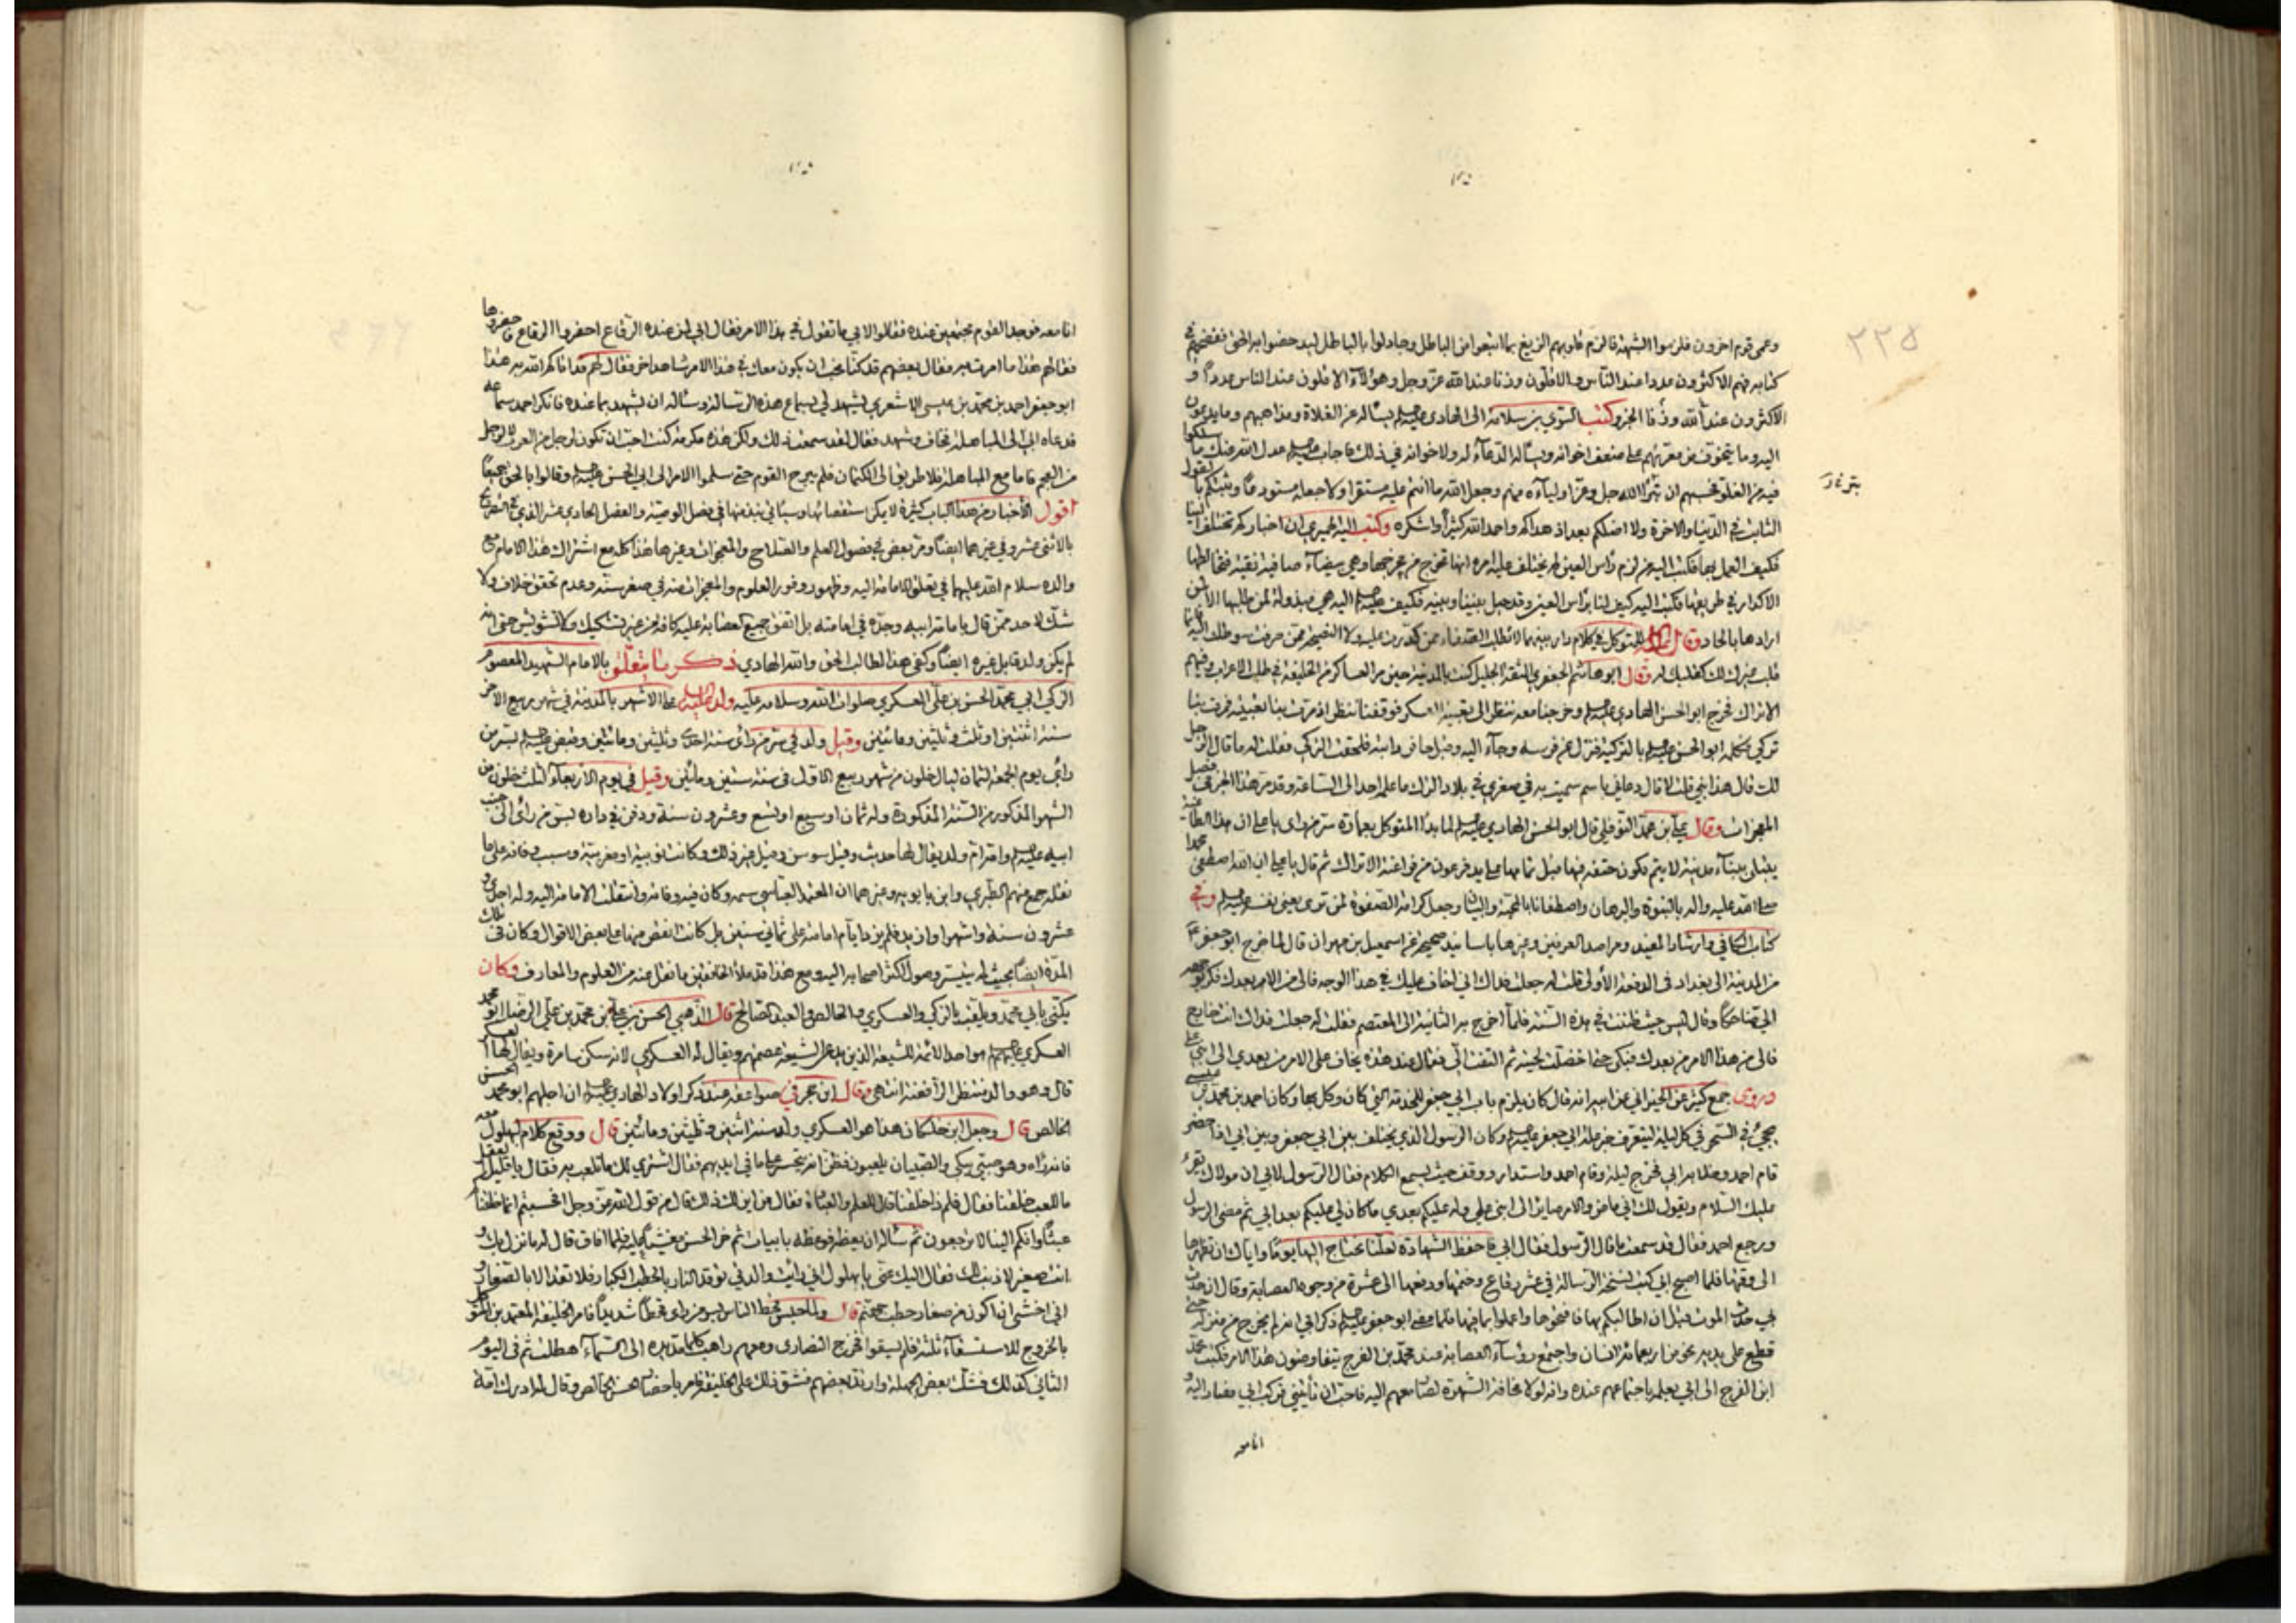 ٢٢٥
وعمي قوم اخرون فلزموا الشبهة فالزم قلوبهم الزيغ بما اتبعوا من الباطل وجادلوا بالباطل ليدحضوا به الحق ففضحهم في
كتابه فهم الاكثرون عددا عند الناس والاقلون وزنا عند الله عز وجل وهؤلاء الاقلون عند الناس عددا و
الاكثرون عند الله وزنا الخبر وكتب السري بن سلامة الى الهادي يسأله عن الغلاة ومذاهبهم وما يدعون
اليه وما يتخوف من معرتهم على ضعف اخوانه ويسأله الدعاء له ولاخوانه في ذلك فاجاب عدل الله عنك ما سلكوا
فيه من الغلو فحسبهم ان تبرأ الله جل وعز واولياءه منهم وجعل الله ما انتم عليه مستقرا ولا جعله مستودعا وثبتكم بالقول
الثابت في الدنيا والاخرة ولا اضلكم بعد اذ هداكم واحمد الله كثيرا واشكره وكتب اليه الحميري ان اخباركم تختلف الينا
فكيف العمل بها فكتب اليه من لزم راس العين لم يختلف عليه امره انها تخرج من مخرجها وهي بيضاء صافية نقية فتخالطها
الاكدار في طريقها فكتب اليه كيف لنا براس العين وقد حيل بيننا وبينه فكتب اليه هي مبذولة لمن طلبها الا لمن
ارادها بالحاد وقال للمتوكل في كلام دار بينهما لا تطلب الصفاء ممن كدرت عليه ولا النصح ممن صرفت سوء ظنك اليه فانما
قلب غيرك لك كقلبك له وقال ابو هاشم الجعفري الثقة الجليل كنت بالمدينة حين مر العساكر من الخليفة في طلب الاعراب وفيهم
الاتراك فخرج ابو الحسن الهادي وخرجنا معه ننظر الى تعبية العسكر فوقفنا ننظر اذ مرت بنا تعبيته فمر بنا
تركي فكلمه ابو الحسن بالتركية فنزل عن فرسه وجاء اليه وقبل حافر دابته فلحقت التركي فقلت له ما قال الرجل
لك قال هذا نبي قلت لا قال دعاني باسم سميت به في صغري في بلاد الترك ما علمه احد الى الساعة وقد مر هذا الخبر في فصل
المعجزات وقال علي بن محمد النوفلي قال ابو الحسن الهادي لما بدا المتوكل بعمارة سر من راى يا علي ان هذا الطاغية
يبتلى ببناء مدينة لا يتم تكون حتفه فيها قبل تمامها على يد فرعون من فراعنة الاتراك ثم قال يا علي ان الله اصطفى محمدا
صلى الله عليه واله بالنبوة والبرهان واصطفانا بالمحبة والبيان وجعل كرامة الصفوة لمن ترى يعني نفسه وفي
كتاب الكافي وارشاد المفيد ومراصد العرنين وغيرها باسانيد صحيحة عن اسمعيل بن مهران قال لما خرج ابو جعفر
من المدينة الى بغداد في الدفعة الاولى قلت له جعلت فداك اني اخاف عليك في هذا الوجه فالى من الامر بعدك فكر بوجهه
الي ضاحكا وقال ليس حيث ظننت في هذه السنة فلما اخرج به الثانية الى المعتصم فقلت له جعلت فداك انت خارج
فالى من هذا الامر من بعدك فبكى حتى اخضلت لحيته ثم التفت الي فقال عند هذه يخاف علي الامر من بعدي الى ابني علي
وروى جمع كثير عن الخيراني عن ابيه انه قال كان يلزم باب ابي جعفر للخدمة التي كان وكل بها وكان احمد بن محمد بن عيسى
يجيء في السحر في كل ليلة ليتعرف خبر علة ابي جعفر وكان الرسول الذي يختلف بين ابي جعفر وبين ابي اذا حضر
قام احمد وخلا به ابي فخرج ليلة وقام احمد واستدار ووقف حيث يسمع الكلام فقال الرسول لابي ان مولاك يقرء
عليك السلام ويقول لك اني ماض والامر صاير الى ابني علي وله عليكم بعدي ما كان لي عليكم بعد ابي ثم مضى الرسول
ورجع احمد فقال قد سمعت ما قال الرسول فقال ابي فاحفظ الشهادة لعلنا نحتاج اليها يوما واياك ان تظهرها
الى وقتها فلما اصبح ابي كتب نسخة الرسالة في عشر رقاع وختمها ودفعها الى عشرة من وجوه العصابة وقال ان حدث
بي حدث الموت قبل ان اطالبكم بها فافتحوها واعملوا بما فيها فلما مضى ابو جعفر ذكر ابي انه لم يخرج من منزله حتى
قطع على يديه نحو من اربعمائة انسان واجتمع رؤساء العصابة عند محمد بن الفرج يتفاوضون هذا الامر فكتب محمد
ابن الفرج الى ابي يعلمه باجتماعهم عنده وانه لولا مخافة الشهرة لصار معهم اليه فاحب ان تأتيني فركب ابي فصار اليه و
انا معه
انا معه فوجد القوم مجتمعين عنده فقالوا لابي ما تقول في هذا الامر فقال ابي لمن عنده الرقاع احضروا الرقاع فاحضروها
فقال لهم هذا ما امرت به فقال بعضهم قد كنا نحب ان يكون معك في هذا الامر شاهد اخر فقال لهم قد اتاكم الله به هذا
ابو جعفر احمد بن محمد بن عيسى الاشعري يشهد لي بسماع هذه الرسالة وسأله ان يشهد بما عنده فانكر احمد سماعه
فدعاه ابي الى المباهلة فخاف وشهد فقال لقد سمعت ذلك ولكن هذه مكرمة كنت احب ان تكون لرجل من العرب لا لرجل
من العجم فاما مع المباهلة فلا طريق الى الكتمان فلم يبرح القوم حتى سلموا الامر الى ابي الحسن وقالوا بالحق جميعا
اقول الاخبار من هذا الباب كثيرة لا يمكن استقصائها وسيأتي نبذ منها في فصل الوصية والفصل الحادي عشر الذي في
بالاثني عشر وفي غيرهما ايضا ومر بعض في فصول العلم والصلاح والمعجزات وغيرها هذا كله مع اشتراك هذا الامام مع
والده سلام الله عليهما في تعلق الامامة اليه وظهور وفور العلوم والمعجزات منه في صغر سنه وعدم تحقق خلاف ولا
شك لاحد ممن قال بامامة ابيه وجده في امامته بل اتفق جميع العصابة عليه كافة من غير تشكيك ولا تشويش حتى انه
لم يكن ولد قابل غيره ايضا وكفى هذا لطالب الحق والله الهادي ذكر ما يتعلق بالامام الشهيد المعصوم
الزكي ابي محمد الحسن بن علي العسكري صلوات الله وسلامه عليه ولد على الاشهر بالمدينة في شهر ربيع الاخر
سنة اثنتين او ثلث وثلثين ومائتين وقيل ولد في سر من راى سنة احدى وثلثين ومائتين وقبض بسر من
راى يوم الجمعة لثمان ليال خلون من شهر ربيع الاول في سنة ستين ومائتين وقيل في يوم الاربعاء لثلث خلون من
الشهر المذكور من السنة المذكورة وله ثمان او سبع او تسع وعشرون سنة ودفن في داره بسر من راى الى جنب
ابيه وامه ام ولد يقال لها حديث وقيل سوسن وقيل غير ذلك وكانت نوبية او مغربية وسبب وفاته على ما
نقله جمع منهم الطبري وابن بابويه وغيرهما ان المعتمد العباسي سمه وكان فيه وفاته وانتقلت الامامة اليه وله احدى و
عشرون سنة واشهر وازيد فلم يزد ايام امامته على ثماني سنين بل كانت انقص منها على بعض الاقوال وكان في تلك
المدة ايضا بحيث لم يتيسر وصول اكثر اصحابه اليه ومع هذا قد ملأ الخافقين ما نقل عنه من العلوم والمعارف وكان
يكنى بابي محمد ويلقب بالزكي والعسكري والخالص والعبد الصالح قال الذهبي الحسن بن علي بن محمد بن علي الرضا ابو محمد
العسكري هو احد الائمة للشيعة الذين يدعي الشيعة عصمتهم ويقال له العسكري لانه سكن سامرة ويقال لها العسكر
قال وهو والد منتظر الرافضة انتهى وقال ابن حجر في صواعقه عند ذكر اولاد الهادي ان اجلهم ابو محمد الحسن
الخالص قال وجعل ابن خلكان هذا هو العسكري ولد سنة اثنين وثلثين ومائتين قال ووقع كلام لبهلول معه
فانه راه وهو صبي يبكي والصبيان يلعبون فظن انه يتحسر على ما في ايديهم فقال اشتري لك ما تلعب به فقال يا قليل العقل
ما للعب خلقنا فقال فلم ذا خلقنا قال للعلم والعبادة فقال من اين لك ذلك قال من قول الله عز وجل افحسبتم انما خلقناكم
عبثا وانكم الينا لا ترجعون ثم سأله ان يعظه فوعظه بابيات ثم خر الحسن مغشيا عليه فلما افاق قال له ما نزل بك و
انت صغير لا ذنب لك فقال اليك عني يا بهلول اني رايت والدتي توقد النار بالحطب الكبار فلا تقد الا بالصغار و
اني اخشى ان اكون من صغار حطب جهنم قال ولما حبس قحط الناس بسر من راى قحطا شديدا فامر الخليفة المعتمد بن المتوكل
بالخروج للاستسقاء ثلثة فلم يسقوا فخرج النصارى ومعهم راهب كلما مد يده الى السماء هطلت ثم في اليوم
الثاني كذلك فشك بعض الجهلة وارتد بعضهم فشق ذلك على الخليفة فامر باحضار الحسن الخالص وقال له ادرك امة